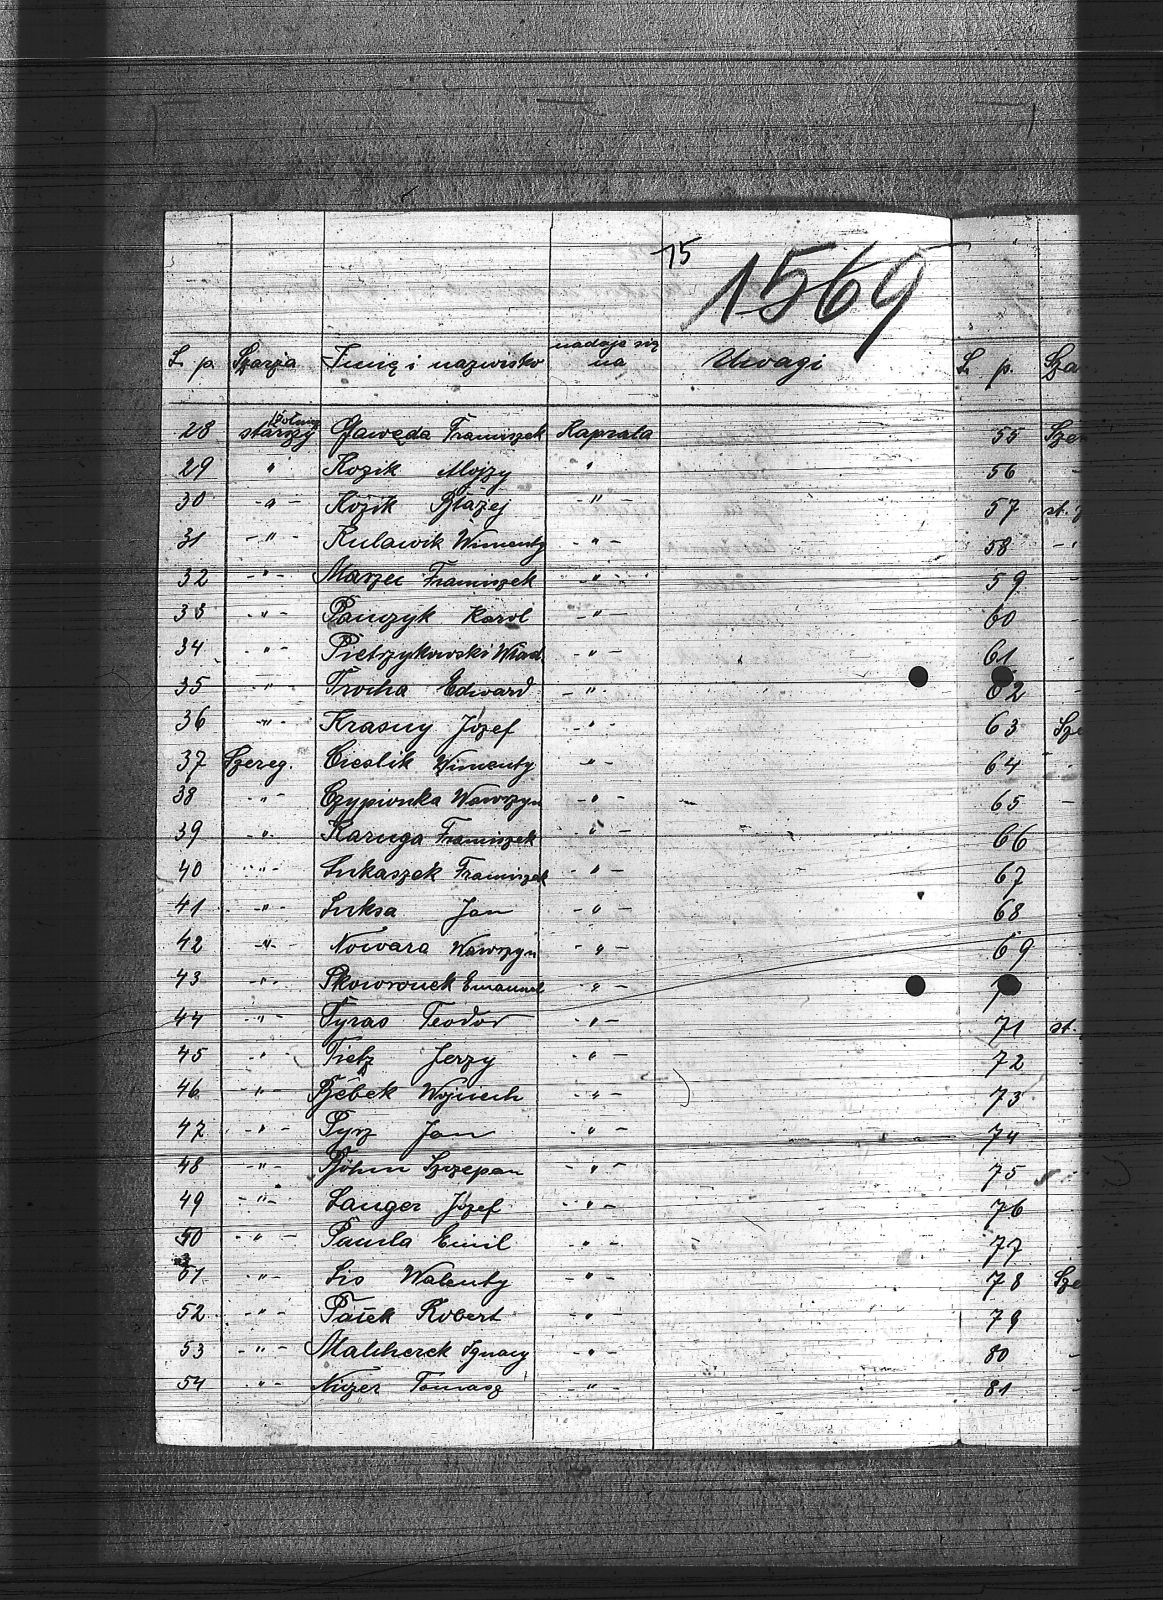 15
1569
L. p. Szarża Imię i nazwisko nadaje się na Uwagi
28 starszy żołnierz Gawęda Franciszek Kaprala
29 " Kozik Alojzy "
30 -"- Kozik Błażej -"-
31 -"- Kulawik Wincenty -"-
32 -"- Marzec Franciszek -"-
33 -"- Pańczyk Karol -"-
34 -"- Pietrzykowski Wład. -"-
35 -"- Trocha Edward -"-
36 -"- Krasny Józef -"-
37 Szereg. Cieślik Wincenty -"-
38 -"- Czypionka Wawrzyn -"-
39 -"- Karuga Franciszek -"-
40 -"- Łukaszek Franciszek -"-
41 -"- Luksa Jan -"-
42 -"- Nowara Wawrzyn -"-
43 -"- Skowronek Emanuel -"-
44 -"- Tyras Teodor -"-
45 -"- Tietz Jerzy -"-
46 -"- Bębek Wojciech -"-
47 -"- Pyrz Jan -"-
48 -"- Böhm Szczepan -"-
49 -"- Langer Józef -"-
50 -"- Pamła Emil -"-
51 -"- Lis Walenty -"-
52 -"- Patek Robert -"-
53 -"- Malcherek Ignacy -"-
54 -"- Tomasz -"-
L. p. Sza
55
56
57 st.
58
59
60
61
62
63 Sze
64
65
66
67
68
69
71 st.
72
73
74
75
76
77
78 Sze
79
80
81